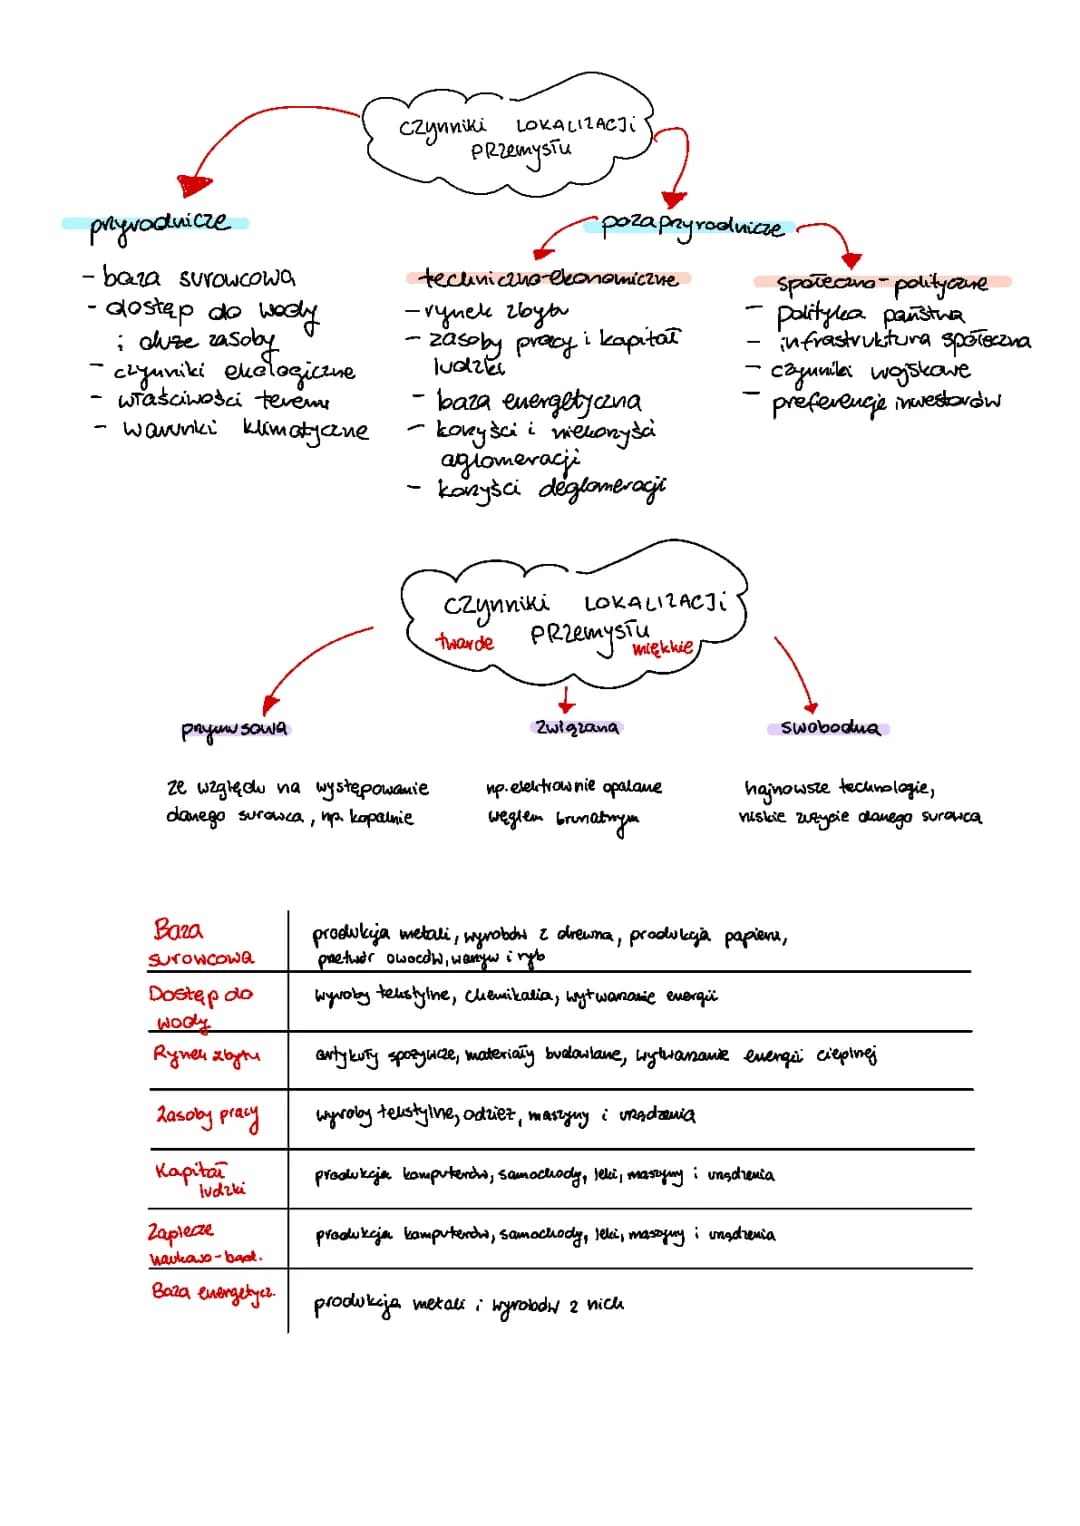 czynniki LOKALIZACJI
PRZEMYSŁU
przyrodnicze
- baza surowcowa
- dostęp do wody
i duże zasoby
- czynniki ekologiczne
- właściwości terenu
- warunki klimatyczne
pozaprzyrodnicze
techniczno-ekonomiczne
- rynek zbytu
- zasoby pracy i kapitał
ludzki
- baza energetyczna
- korzyści i niekorzyści
aglomeracji
- korzyści deglomeracji
społeczno-polityczne
- polityka państwa
- infrastruktura społeczna
- czynniki wojskowe
- preferencje inwestorów
czynniki LOKALIZACJI
PRZEMYSŁU
twarde
miękkie
przymusowa
ze względu na występowanie
danego surowca, np. kopalnie
związana
np. elektrownie opalane
węglem brunatnym
swobodna
najnowsze technologie,
niskie zużycie danego surowca
Baza
surowcowa
produkcja metali, wyrobów z drewna, produkcja papieru,
przetwór owoców, warzyw i ryb
Dostęp do
wody
wyroby tekstylne, chemikalia, wytwarzanie energii
Rynek zbytu
artykuły spożywcze, materiały budowlane, wytwarzanie energii cieplnej
Zasoby pracy
wyroby tekstylne, odzież, maszyny i urządzenia
Kapitał
ludzki
produkcja komputerów, samochody, leki, maszyny i urządzenia
Zaplecze
naukowo-bad.
produkcja komputerów, samochody, leki, maszyny i urządzenia
Baza energetycz.
produkcja metali i wyrobów z nich